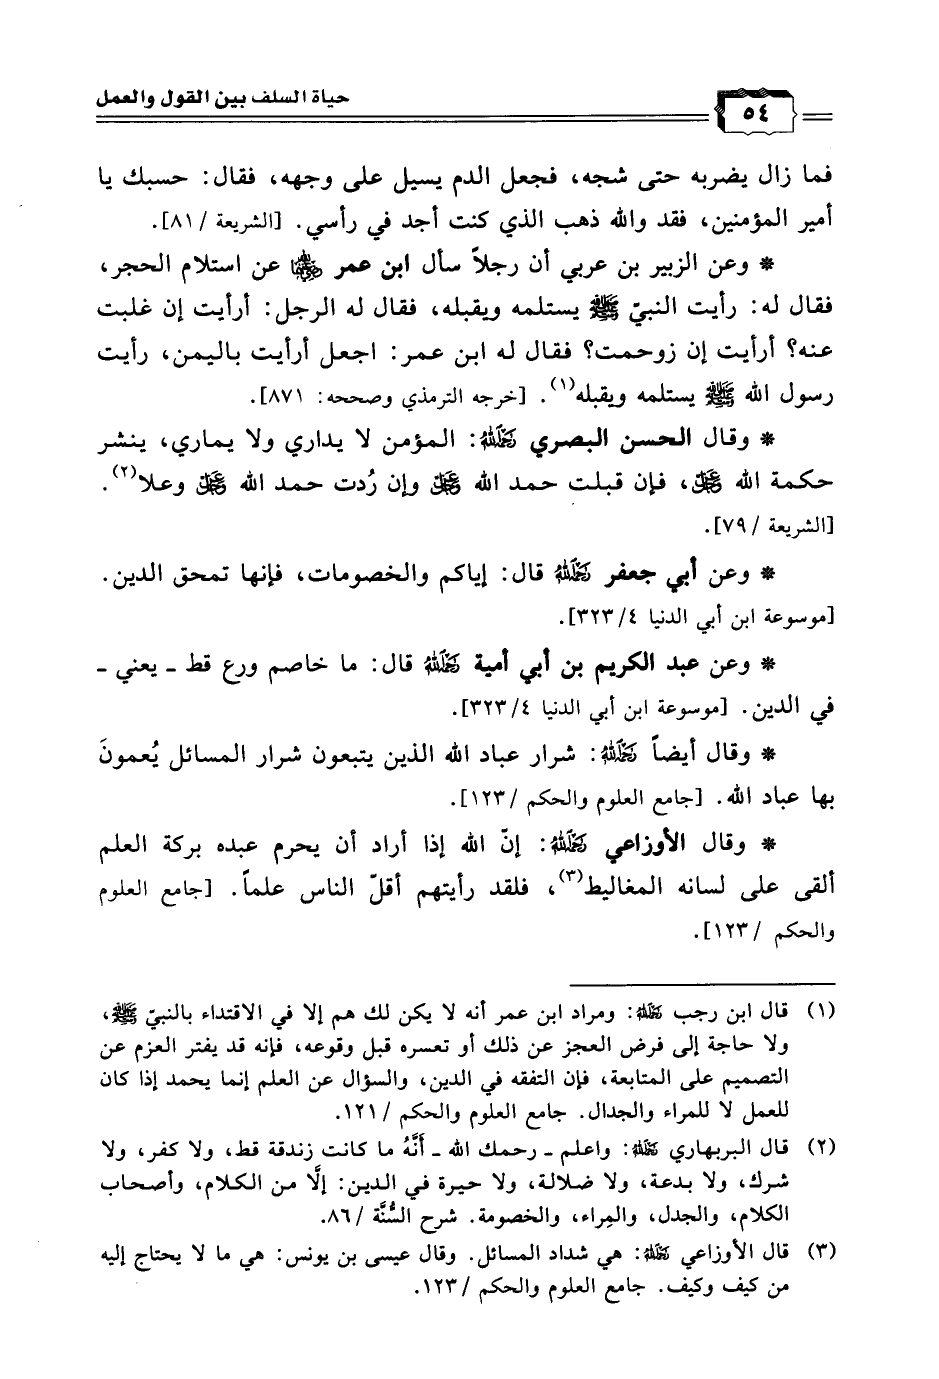 حياة السلف بين القول والعمل
٥٤
فما زال يضربه حتى شجه، فجعل الدم يسيل على وجهه، فقال: حسبك يا
أمير المؤمنين، فقد والله ذهب الذي كنت أجد في رأسي. [الشريعة /٨١].
* وعن الزبير بن عربي أن رجلاً سأل ابن عمر رضي الله عنهما عن استلام الحجر،
فقال له: رأيت النبيّ ﷺ يستلمه ويقبله، فقال له الرجل: أرأيت إن غلبت
عنه؟ أرأيت إن زوحمت؟ فقال له ابن عمر: اجعل أرأيت باليمن، رأيت
رسول الله ﷺ يستلمه ويقبله(١). [خرجه الترمذي وصححه: ٨٧١].
* وقال الحسن البصري رحمه الله: المؤمن لا يداري ولا يماري، ينشر
حكمة الله عز وجل، فإن قبلت حمد الله عز وجل وإن رُدت حمد الله عز وجل وعلا(٢).
[الشريعة /٧٩].
* وعن أبي جعفر رحمه الله قال: إياكم والخصومات، فإنها تمحق الدين.
[موسوعة ابن أبي الدنيا ٤/٣٢٣].
* وعن عبد الكريم بن أبي أمية رحمه الله قال: ما خاصم ورع قط ـ يعني ـ
في الدين. [موسوعة ابن أبي الدنيا ٤/٣٢٣].
* وقال أيضاً رحمه الله: شرار عباد الله الذين يتبعون شرار المسائل يُعمونَ
بها عباد الله. [جامع العلوم والحكم /١٢٣].
* وقال الأوزاعي رحمه الله: إنّ الله إذا أراد أن يحرم عبده بركة العلم
ألقى على لسانه المغاليط(٣)، فلقد رأيتهم أقلّ الناس علماً. [جامع العلوم
والحكم /١٢٣].
(١) قال ابن رجب رحمه الله: ومراد ابن عمر أنه لا يكن لك هم إلا في الاقتداء بالنبيّ ﷺ،
ولا حاجة إلى فرض العجز عن ذلك أو تعسره قبل وقوعه، فإنه قد يفتر العزم عن
التصميم على المتابعة، فإن التفقه في الدين، والسؤال عن العلم إنما يحمد إذا كان
للعمل لا للمراء والجدال. جامع العلوم والحكم /١٢١.
(٢) قال البربهاري رحمه الله: واعلم ـ رحمك الله ـ أَنَّهُ ما كانت زندقة قط، ولا كفر، ولا
شرك، ولا بدعة، ولا ضلالة، ولا حيرة في الدين: إلَّا من الكلام، وأصحاب
الكلام، والجدل، والمِراء، والخصومة. شرح السُّنَّة /٨٦.
(٣) قال الأوزاعي رحمه الله: هي شداد المسائل. وقال عيسى بن يونس: هي ما لا يحتاج إليه
من كيف وكيف. جامع العلوم والحكم /١٢٣.